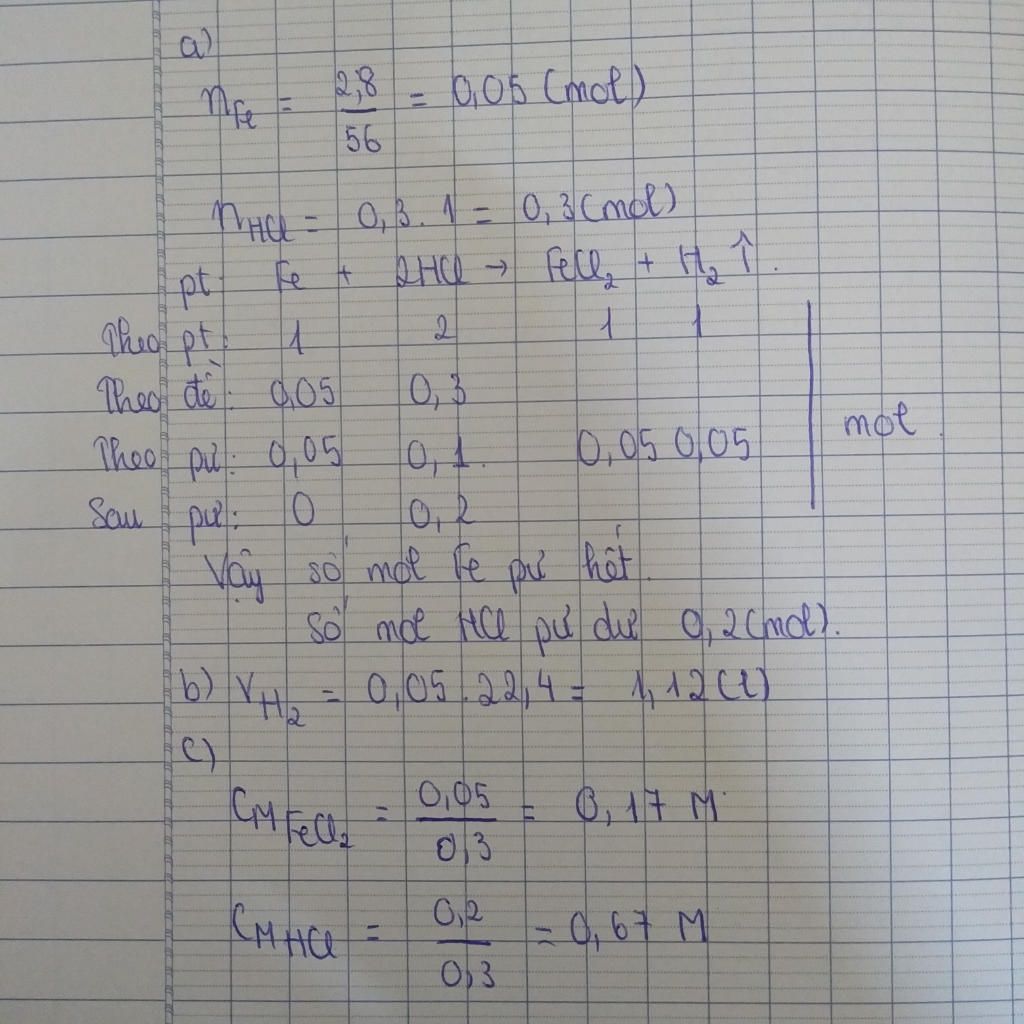 a)
n_Fe = 2,8/56 = 0,05 (mol)
n_HCl = 0,3 . 1 = 0,3 (mol)
pt Fe + 2HCl → FeCl₂ + H₂ ↑.
Theo pt: 1 2 1 1
Theo đề: 0,05 0,3
Theo pư: 0,05 0,1 0,05 0,05 mol
Sau pư: 0 0,2
Vậy số mol Fe pư hết.
Số mol HCl pư dư 0,2 (mol).
b) V_H₂ = 0,05 . 22,4 = 1,12 (l)
c)
CM FeCl₂ = 0,05/0,3 = 0,17 M
CM HCl = 0,2/0,3 = 0,67 M